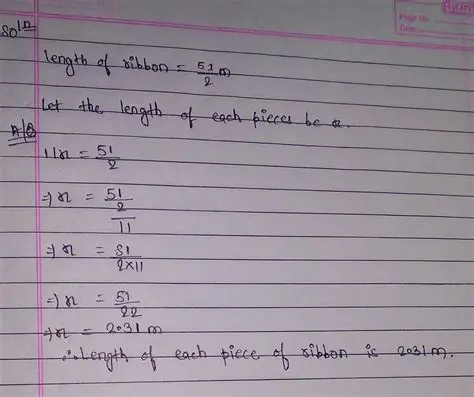 Page No.
Date
Solⁿ
length of ribbon = 51/2 m
Let the length of each pieces be x.
A/Q
11x = 51/2
⇒ x = 51/2/11
⇒ x = 51/2×11
⇒ x = 51/22
⇒ x = 2.31 m
∴ Length of each piece of ribbon is 2.31 m.